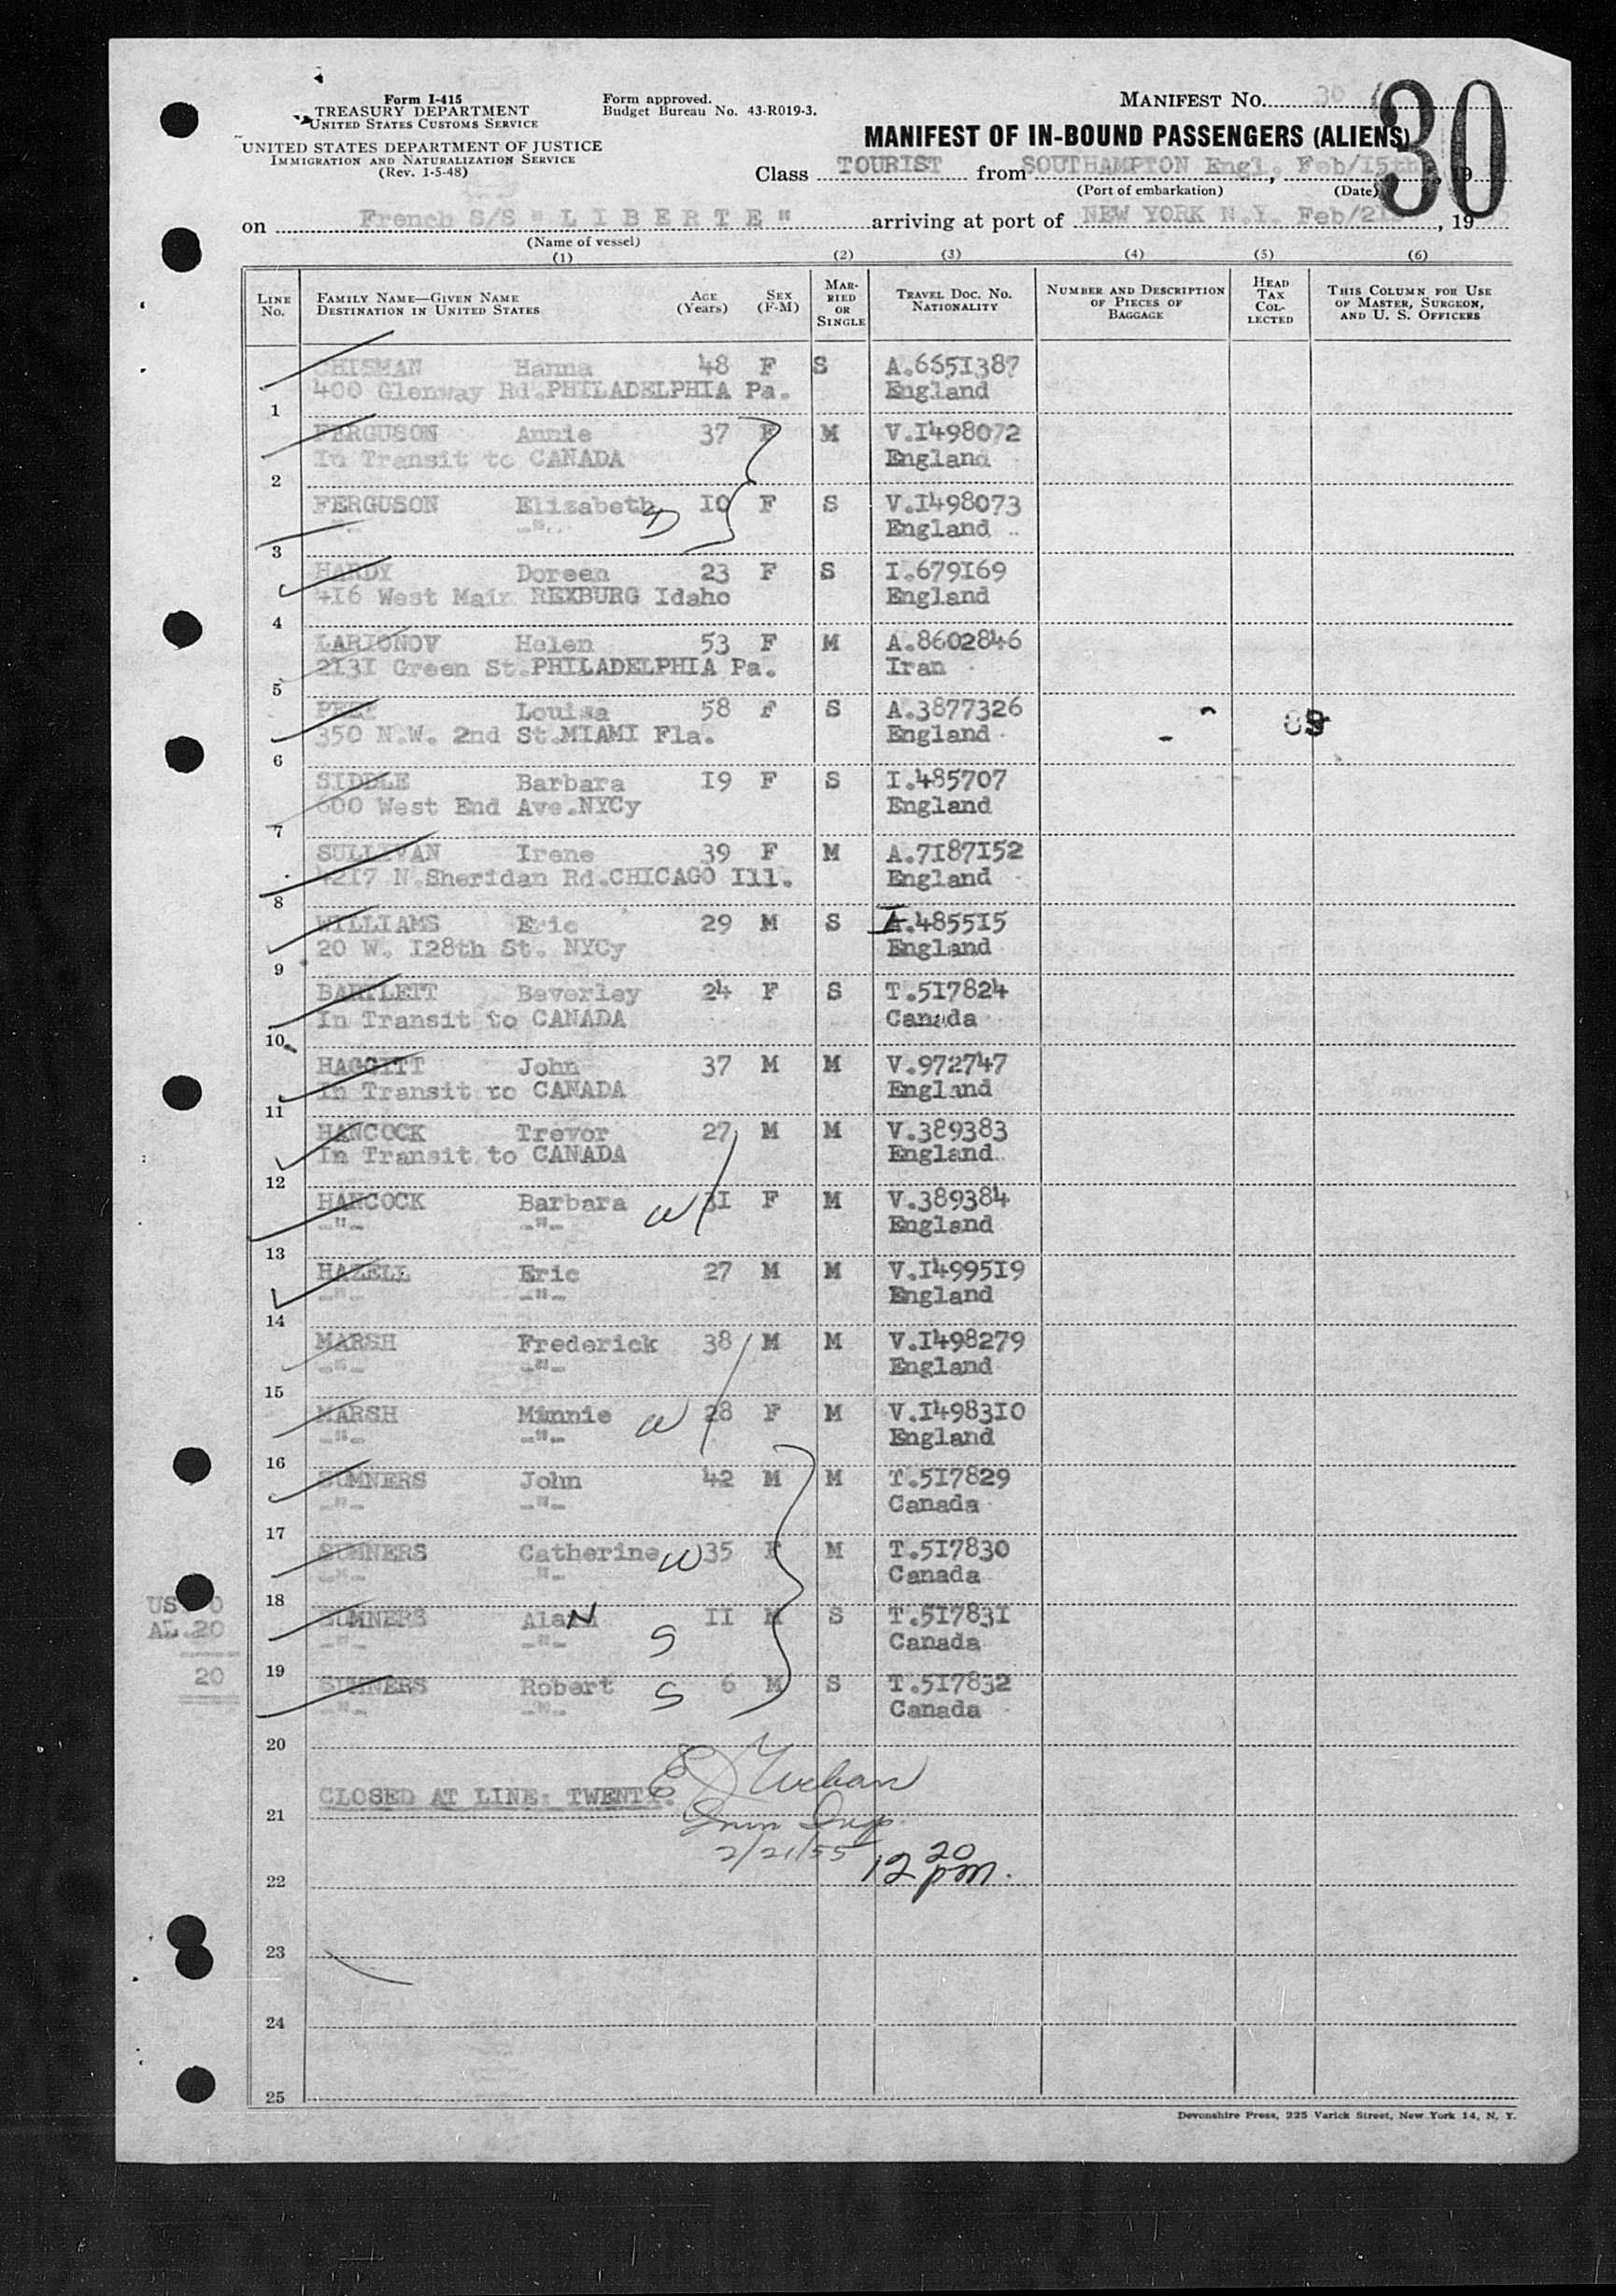 Form I-415
TREASURY DEPARTMENT
UNITED STATES CUSTOMS SERVICE
UNITED STATES DEPARTMENT OF JUSTICE
IMMIGRATION AND NATURALIZATION SERVICE
(Rev. 1-5-48)
Form approved.
Budget Bureau No. 43-R019-3.
MANIFEST NO. 30
30
MANIFEST OF IN-BOUND PASSENGERS (ALIENS)
Class TOURIST from SOUTHAMPTON Engl., Feb/15th, 19
(Port of embarkation) (Date)
on French S/S " L I B E R T E " arriving at port of NEW YORK N.Y. Feb/21, 19 5
(Name of vessel)
(1) (2) (3) (4) (5) (6)
LINE No. FAMILY NAME—GIVEN NAME DESTINATION IN UNITED STATES AGE (Years) SEX (F-M) MARRIED OR SINGLE TRAVEL DOC. NO. NATIONALITY NUMBER AND DESCRIPTION OF PIECES OF BAGGAGE HEAD TAX COLLECTED THIS COLUMN FOR USE OF MASTER, SURGEON, AND U. S. OFFICERS
CHISMAN Hanna 48 F S A.6651387
400 Glenway Rd.PHILADELPHIA Pa. England
1
FERGUSON Annie 37 F M V.I498072
In Transit to CANADA England
2
FERGUSON Elizabeth D 10 F S V.I498073
-"- England
3
HARDY Doreen 23 F S I.679I69
4I6 West Main REXBURG Idaho England
4
LARIONOV Helen 53 F M A.8602846
2I3I Green St.PHILADELPHIA Pa. Iran
5
Louisa 58 F S A.3877326
350 N.W. 2nd St.MIAMI Fla. England
6
SIDDLE Barbara I9 F S I.485707
600 West End Ave.NYCy England
7
SULLIVAN Irene 39 F M A.7I87I52
42I7 N.Sheridan Rd.CHICAGO Ill. England
8
WILLIAMS Eric 29 M S I.4855I5
20 W. I28th St. NYCy England
9
BARTLETT Beverley 24 F S T.5I7824
In Transit to CANADA Canada
10
HAGGITT John 37 M M V.972747
In Transit to CANADA England
11
HANCOCK Trevor 27 M M V.389383
In Transit to CANADA England
12
HANCOCK Barbara W 3I F M V.389384
-"- -"- England
13
HAZELL Eric 27 M M V.I4995I9
-"- -"- England
14
MARSH Frederick 38 M M V.I498279
-"- -"- England
15
MARSH Minnie W 28 F M V.I4983I0
-"- -"- England
16
SUMNERS John 42 M M T.5I7829
-"- -"- Canada
17
SUMNERS Catherine W 35 F M T.5I7830
-"- -"- Canada
18
SUMNERS AlaN II M S T.5I783I
-"- -"- S Canada
19
SUMNERS Robert S 6 M S T.5I7832
-"- -"- Canada
20
US. 0
AL.20
20
CLOSED AT LINE: TWENTY.
21
Imm Insp.
2/21/55 12 20 pm.
22
23
24
25
Devonshire Press, 225 Varick Street, New York 14, N. Y.